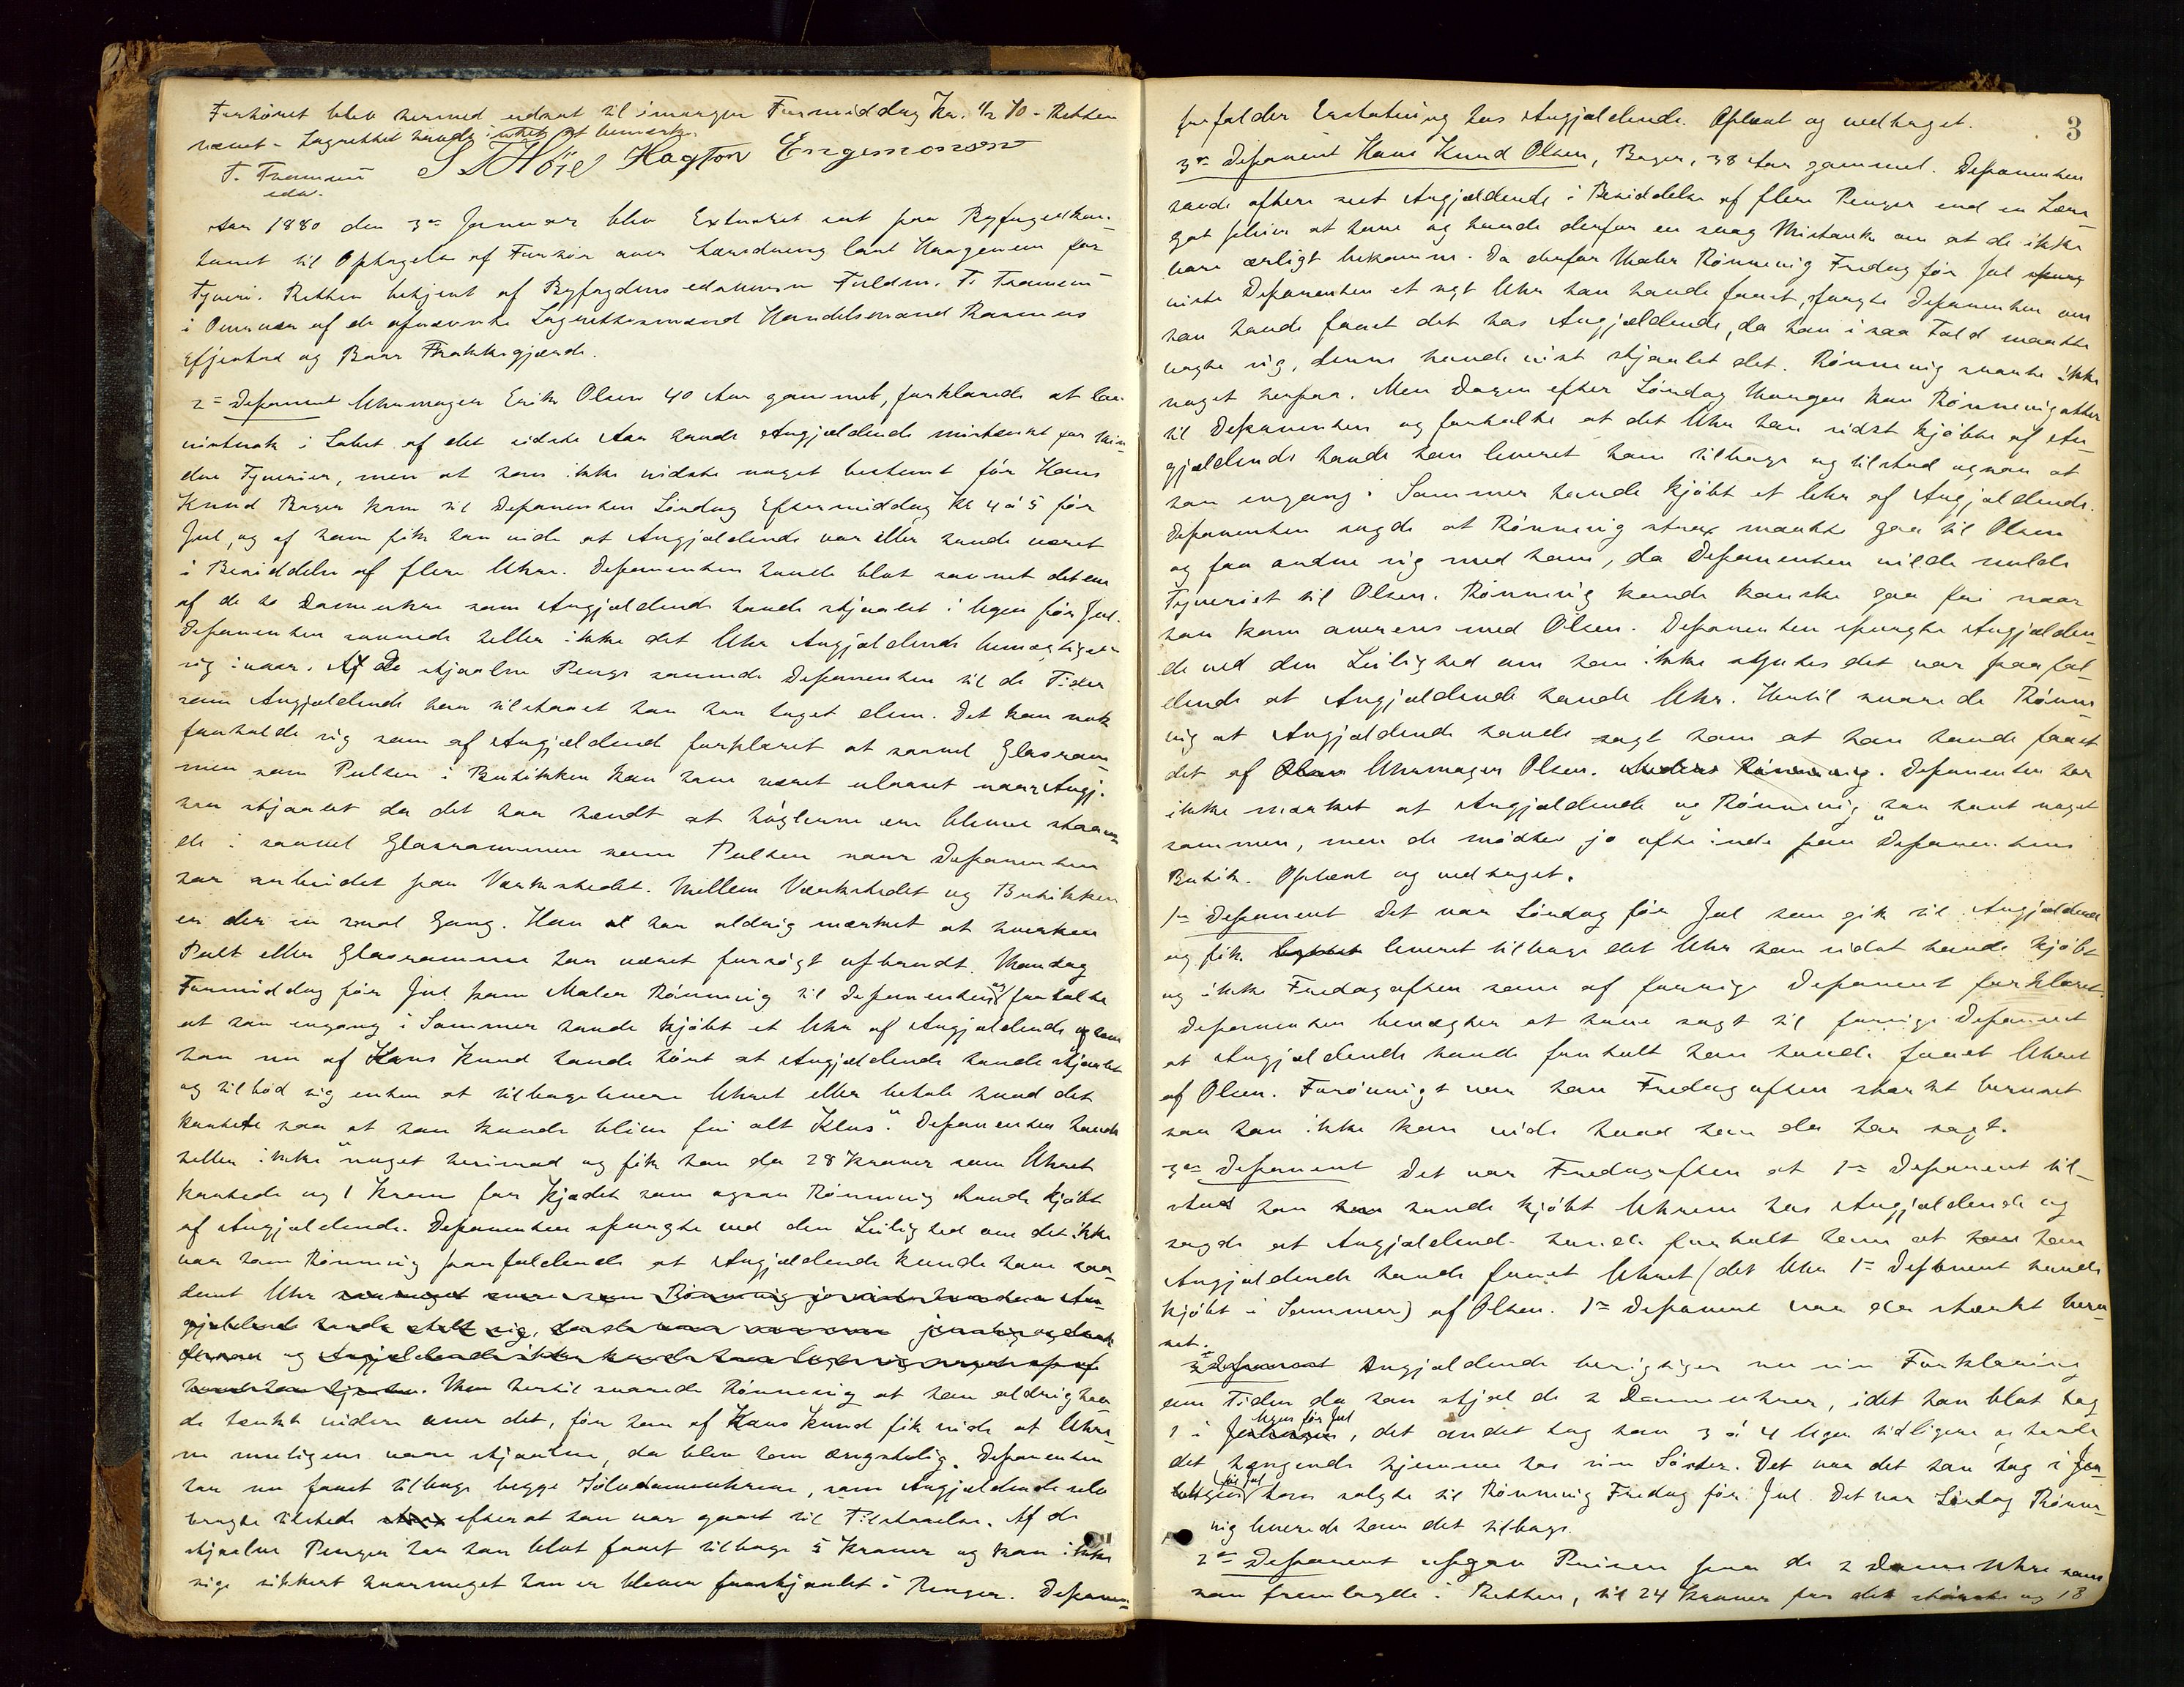 Forhöret blev hermed udsat til imorgen Formiddag Kr. 1/2 10 - Retten
hævet - Lagrettet havde intet at bemærke.
F. Framnæs S T Höie Hagton Engemonsen
edsv.
Aar 1880 den 3die Januar blev Extraret sat paa Byfogedkon-
toret til Optagelse af Forhör over
Tyveri. Retten betjent af Byfogdens edsvorne Fuldm. F. Framnæs
i Overvær af de opnævnte Lagrettesmænd Handelsmand Rasmus
Espested og Baar Frakkagjærde.
2den Deponent Uhrmager Erik Olsen 40 Aar gammel, forklarede at han
vistnok i Löbet af det sidste Aar havde Angjældende mistænkt for min-
dre Tyverier, men at han ikke vidste noget bestemt för Hans
Knud Bager kom til Deponenten Lördag Eftermiddag Kl 4 à 5 för
Jul, og af ham fik han vide at Angjældende var eller havde været
i Besiddelse af flere Uhre. Deponenten havde blot savnet det ene
af de to Dameuhre som Angjældende havde stjaalet i Ugen för Jul.
Deponenten savnede heller ikke det Uhr Angjældende bemægtiget
sig ivaar. Af de stjaalne Penge savnede Deponenten til de Tider
som Angjældende har tilstaaet han har taget dem. Det kan nok
forholde sig som af Angjældend forklaret at saavel Glasram-
men som Pulten i Butikken kan have været ulaaset naar Angj.
har stjaalet da det har hændt at Nöglerne ere blevne staaen-
de i saavel Glasrammen som Pulten naar Deponenten
har arbeidet paa Værkstedet. Mellem Værkstedet og Butikken
er der en smal Gang. Han har aldrig mærket at hverken
Pult eller Glasramme har været forsögt opbrudt. Mandag
Formiddag för Jul kom Maler Rönnevig til Deponenten og fortalte
at han engang i Sommer havde kjöbt et Uhr af Angjældende og som
han nu af Hans Knud havde hört at Angjældende havde stjaalet
og tilböd sig enten at tilbagelevere Uhret eller betale hvad det
kostede saa at han kunde blive fri alt Klus." Deponenten havde
heller ikke noget herimod og fik han da 28 Kroner som Uhret
kostede og 1 Krone for Kjædet som ogsaa Rönnevig havde kjöbt
af Angjældende. Deponenten spurgte ved den Leilighed om det ikke
var ham Rönnevig paafaldende at Angjældende kunde have saa-
dant Uhr
og
Men hertil svarede Rönnevig at han aldrig hav-
de tænkt videre over det, för han af Hans Knud fik vide at Uhre-
ne muligens vare stjaalne, da blev han ængstelig. Deponenten
har nu faaet tilbage begge Sölvdameuhrene, som Angjældende selv
bragte tilstede efterat han var gaaet til Tilstaaelse. Af de
stjaalne Penger har han blot faaet tilbage 5 Kroner og kan ikke
sige sikkert hvormeget han er bleven frastjaalet i Penger. Deponen-
3
forfalder Erstatning hos Angjældende. Oplæst og vedtaget.
3die Deponent Hans Knud Olsen, Bager, 38 Aar gammel. Deponenten
havde oftere seet Angjældende i Besiddelse af flere Penger end en Lære-
gut pleier at have og havde derfor en svag Mistanke om at de ikke
vare ærligt bekomne. Da derfor Maler Rönnevig Fredag för Jul
viste Deponenten et nyt Uhr han havde faaet, spurgte Deponenten om
han havde faaet det hos Angjældende, da han i saa Fald maatte
vogte sig, denne havde vist stjaalet det. Rönnevig svarte ikke
noget herpaa. Men Dagen efter Löndag Morgen kom Rönnevig atter
til Deponenten og fortalte at det Uhr han sidst kjöbte af An-
gjældende havde han leveret ham tilbage og tilstod ogsaa at
han engang i Sommer havde kjöbt et Uhr af Angjældende.
Deponenten sagde at Rönnevig strax maatte gaa til Olsen
og faa ordne sig med ham, da Deponenten vilde melde
Tyveriet til Olsen. Rönnevig kunde kanske gaa fri naar
han kom overens med Olsen. Deponenten spurgte Angjælden-
de ved den Leilighed om han ikke syntes det var paafal-
dende at Angjældende havde Uhr. Hertil svarede Rönne-
vig at Angjældende havde sagt ham at han havde faaet
det af Uhrmager Olsen. Deponenten har
ikke mærket at Angjældende og Rönnevig har havt noget
sammen, men de mödtes jo ofte inde paa Deponentens
Butik. Oplæst og vedtaget.
1ste Deponent Det var Löndag för Jul han gik til Angjældende
og fik leveret tilbage det Uhr han sidst havde kjöbt
og ikke Fredagaften som af forrige Deponent forklaret.
Deponenten benægter at have sagt til forrige Deponent
at Angjældende havde fortalt ham havde faaet Uhret
af Olsen. Forövrigt var han Fredagaften stærkt beruset
saa han ikke kan vide hvad han da har sagt.
3die Deponent Det var Fredagaften at 1ste Deponent til-
stod han havde kjöbt Uhrene hos Angjældende og
sagde at Angjældende havde fortalt ham at han
Angjældende havde faaet Uhret (det Uhr 1ste Deponent havde
kjöbt i Sommer) af Olsen. 1ste Deponent var da stærkt beru-
set.
Angjældende berigtiger nu sin Forklaring
om Tiden da han stjal de 2 Dameuhrer, idet han blot tog
1 i Ugen för Jul, det andet tog han 3 à 4 Uger tidligere og havde
det hængende hjemme hos sin Söster. Det var det han tog i
för Jul som solgte til Rönnevig Fredag för Jul. Det var Löndag Rönne-
vig leverede ham det tilbage.
2den Deponent opgav Prisen paa de 2 Dameuhre som
han fremlagde i Retten, til 24 Kroner for det störste og 18